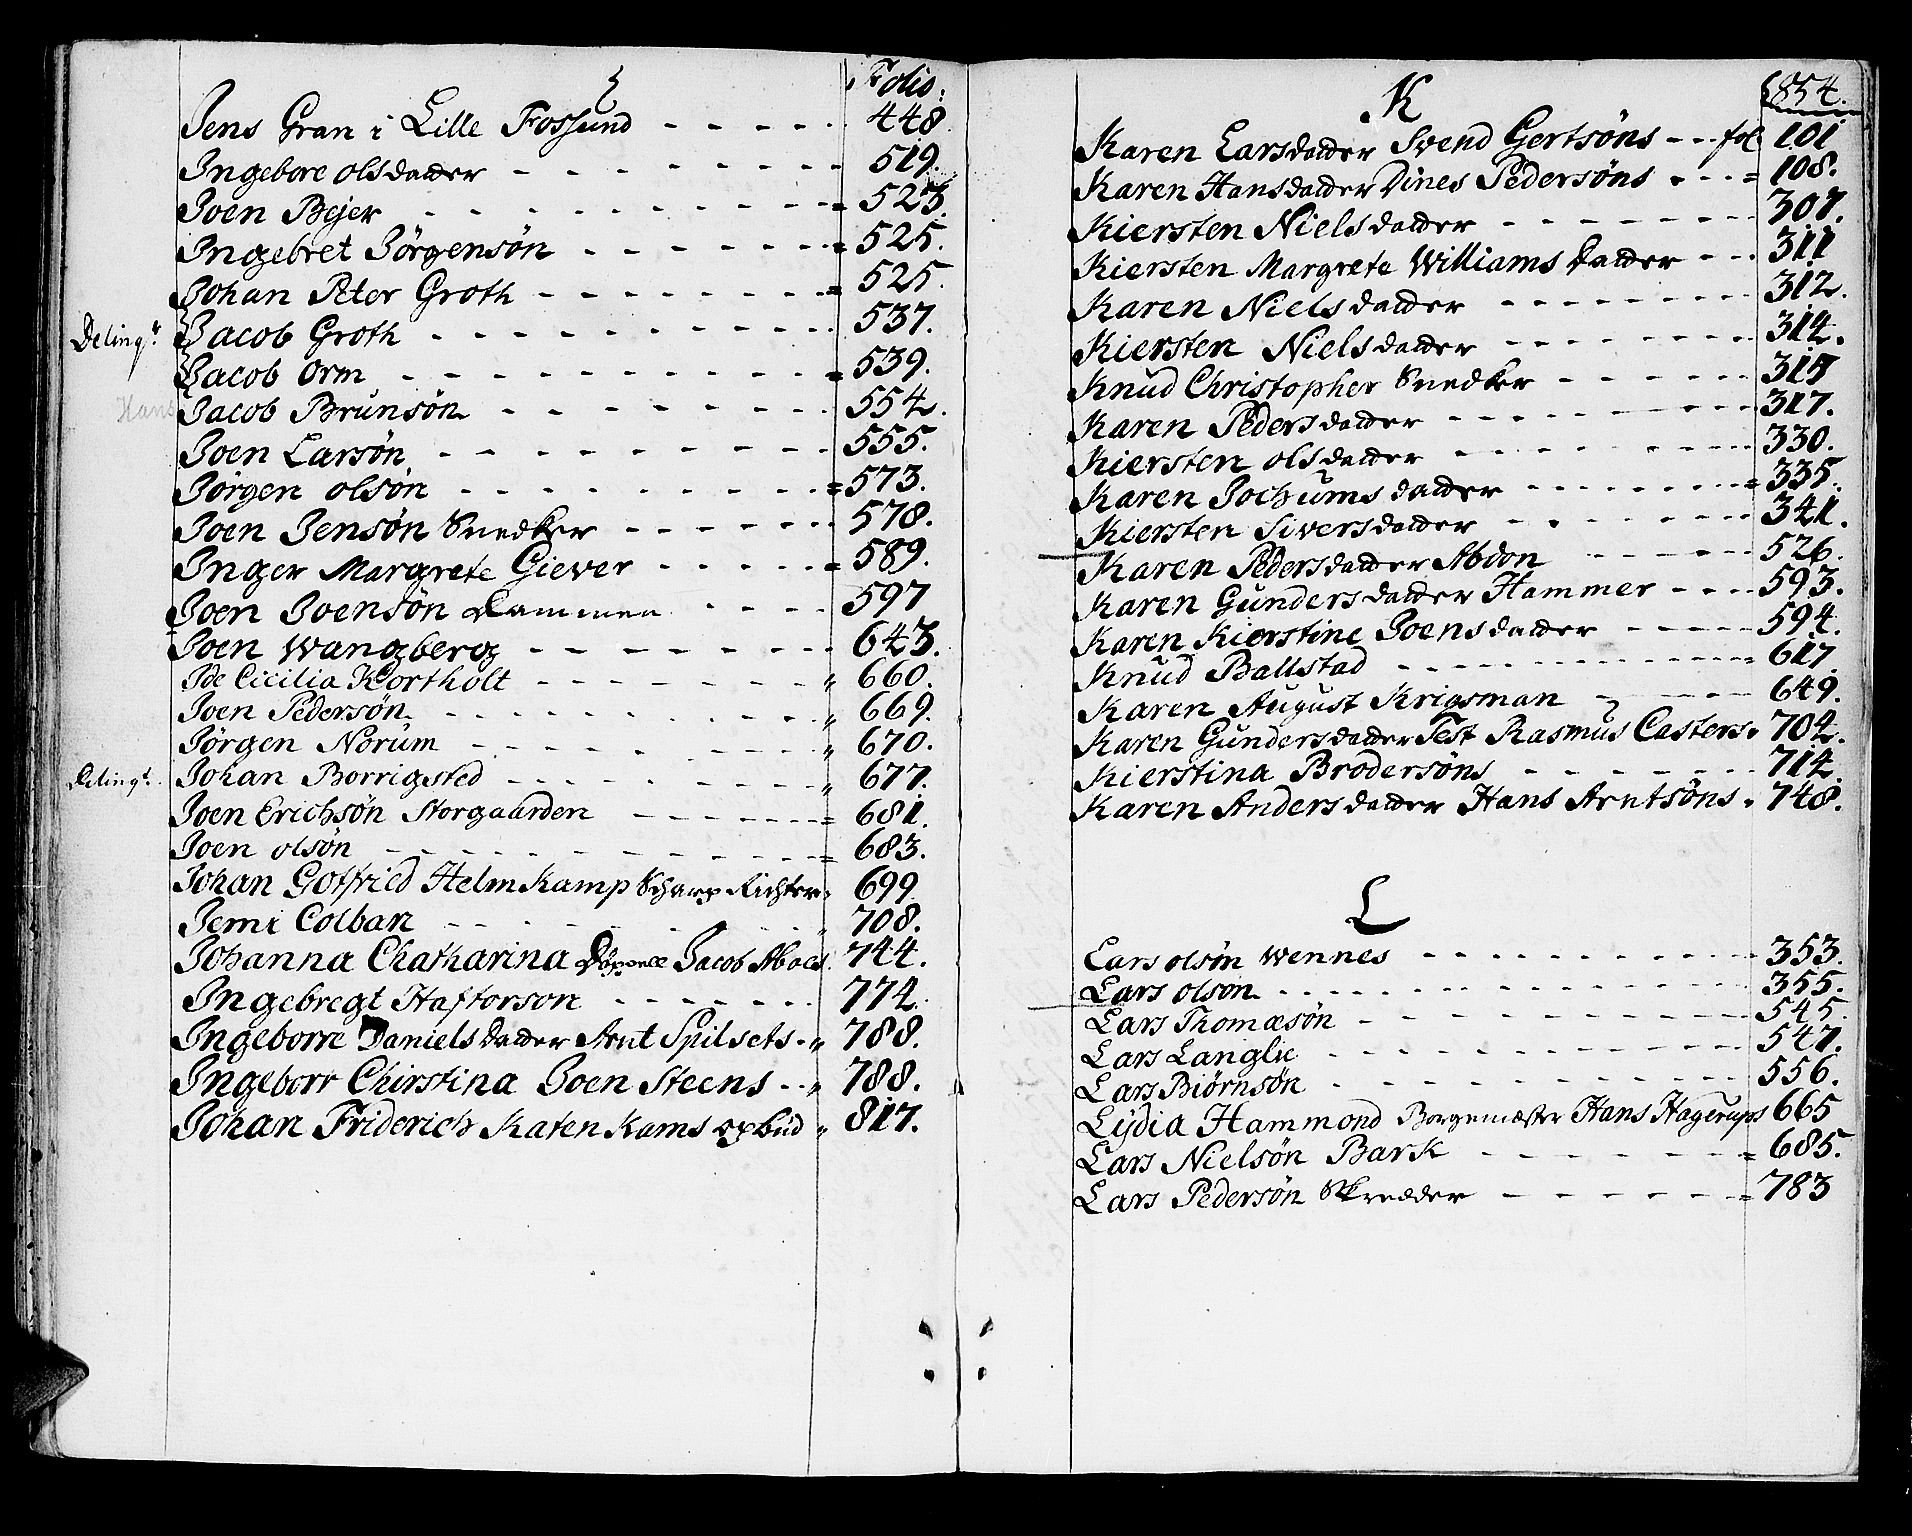 Folio:
Jens Gran i Lille Fossund - - - - - 448
Ingebore olsdatter - - - - - - - - 519.
Joen Bejer - - - - - - - - - 523.
Ingebret Jörgensön - - - - - - - 525.
Johan Peter Groth - - - - - - - - 525.
Delingr. Jacob Groth - - - - - - - - - - 537.
Jacob Orm - - - - - - - - - - 539.
Hans Jacob Brunsön - - - - - - - - 554.
Joen Larsön - - - - - - - - - 555.
Jörgen olsön - - - - - - - - - 573.
Joen Jensön Snedker - - - - - - 578.
Inger Margrete Giever - - - - - 589.
Joen Joensön Dammen - - - - 597
Joen Wangberg - - - - - - - 643.
Ide Cicilia Kortholt - - - - - - - " 660.
Joen Pedersön - - - - - - - - - " 669.
Jörgen Norum - - - - - - - - " 670.
Delingr. Johan Borrigsted - - - - - - - " 677.
Joen Erichsön Storgaarden - - - - - 681.
Joen olsön - - - - - - - - - - 683.
Johan Gotfried Helmkamp Scharp Richter 699.
Jemi Colban - - - - - - - - - " 708.
Johanna Chatharina Jacob 744.
Ingebregt Haftorson - - - - - - 774.
Ingeborre Daniels datter Arnt Spilsets - " 788.
Ingeborr Chirstina Joen Steens - - " 788.
Johan Friderich Katenkams opbud " 817.
K
854.
Karen Larsdatter Svend Gertsöns - - fol 101
Karen Hansdatter Dines Pedersöns - - - 108.
Kiersten Nielsdatter - - - - - - - 307.
Kiersten Margrete Williams datter - - - 311
Karen Nielsdatter - - - - - - - - 312.
Kiersten Nielsdatter - - - - - - - 314.
Knud Christopher Snedker - - - - - 315
Karen Pedersdatter - - - - - - - - 317.
Kiersten olsdatter - - - - - - - - 330.
Karen Jochums datter - - - - - - - 335.
Kiersten Siversdatter - - - - - - - 341.
Karen Pedersdatter Abdon - - - - - 526.
Karen Gundersdatter Hammer - - - - 593.
Karen Kierstine Joensdatter - - - - - 594.
Knud Ballstad - - - - - - - - - - 617.
Karen August Krigsman - - - - - 649.
Karen Gundersdatter Test Rasmus Casters. 704.
Kierstina Brodersöns - - - - - - - 714.
Karen Andersdatter Hans Arntsöns - 748.
L
Lars olsön Wennes - - - - - - - - 353.
Lars olson - - - - - - - - - - - 355.
Lars Thomæsön - - - - - - - - - 545.
Lars Langlie - - - - - - - - - - - 547.
Lars Biörnsön - - - - - - - - - - 556.
Lÿdia Hammond Borgemæster Hans Hagerups 665
Lars Nielsön Bark - - - - - - - 685.
Lars Pedersön Skredder - - - - - - 783